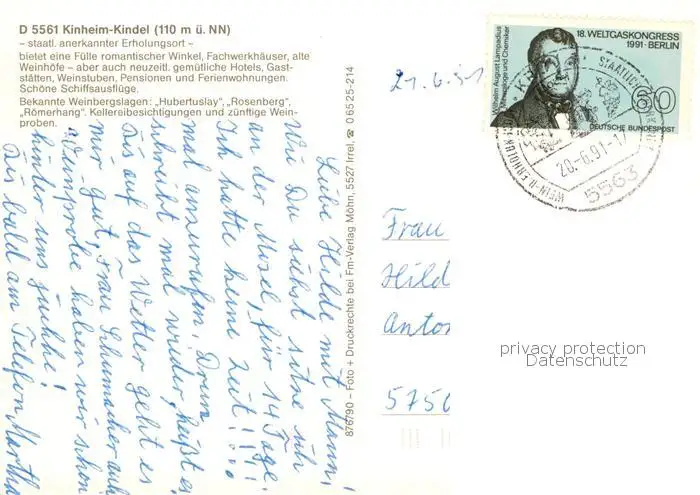 D 5561 Kinheim-Kindel (110 m ü. NN)
– staatl. anerkannter Erholungsort –
bietet eine Fülle romantischer Winkel, Fachwerkhäuser, alte
Weinhöfe – aber auch neuzeitl. gemütliche Hotels, Gast-
stätten, Weinstuben, Pensionen und Ferienwohnungen.
Schöne Schiffsausflüge.
Bekannte Weinbergslagen: „Hubertuslay", „Rosenberg",
„Römerhang". Kellereibesichtigungen und zünftige Wein-
proben.
21.6.91
Liebe Hilde mit Mann!
Wie Du siehst sitze ich
an der Mosel, für 14 Tage.
Ich hatte keine Zeit!!!
mal anzurufen. Drum
schreibt mal wieder, heißt es
Bis auf das Wetter geht es
mir gut, Frau Schumacher auch
Weinprobe haben wir schon
hinter uns juchhe!
Bis bald am Telefon Martha
876790 – Foto + Druckrechte bei Fm-Verlag Möhn, 5527 Irrel, ☎ 06525-214
Wilhelm August Lampadius
Hüttenbiologe und Chemiker
18. WELTGASKONGRESS
1991 · BERLIN
60
DEUTSCHE BUNDESPOST
STAATLICH
WEIN-U. ERHOLUNGSORT
20.-6.91-17
5563
Frau
Hild
Anton
5750
privacy protection
Datenschutz